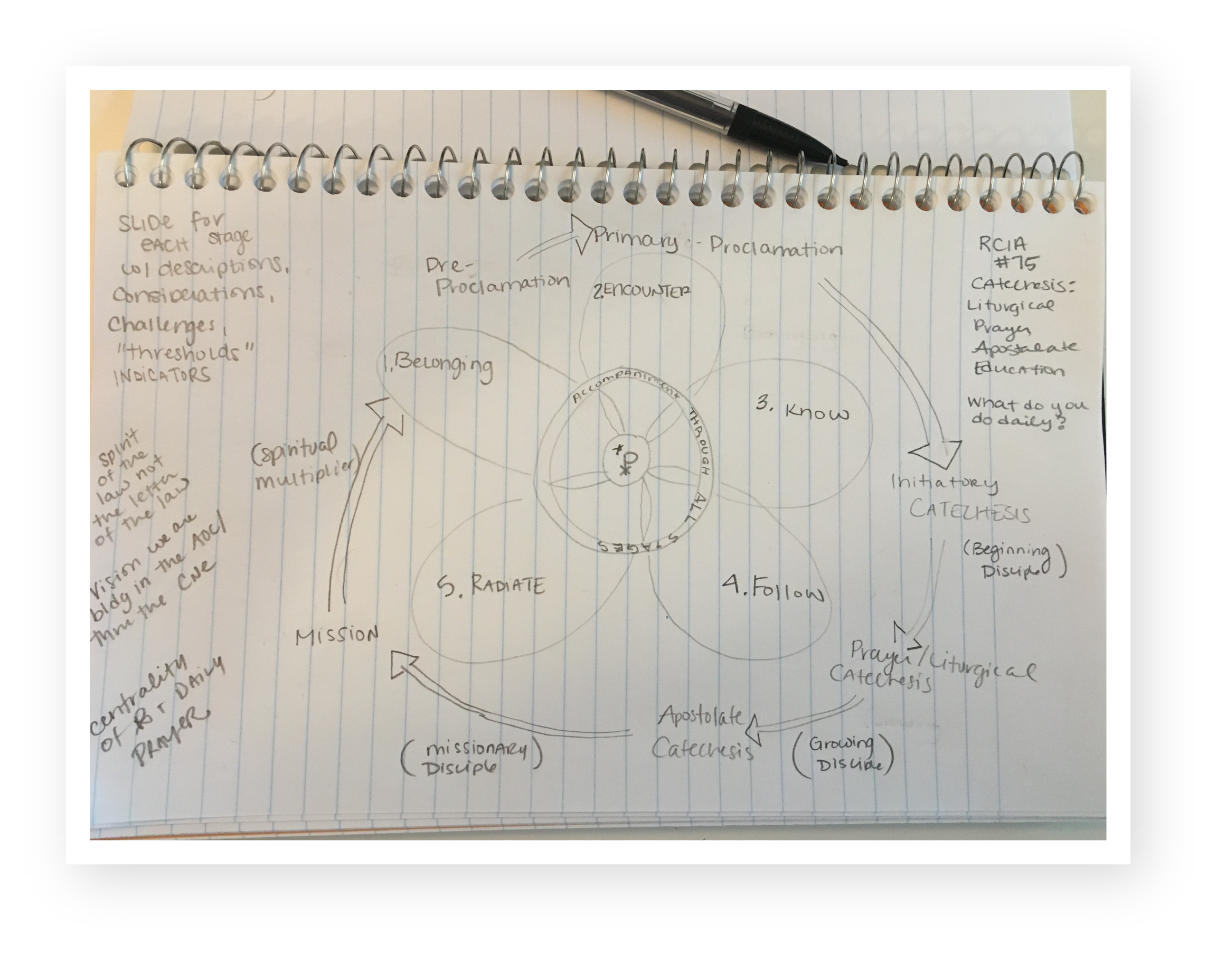 SLIDE for
EACH stage
w/ descriptions,
Considerations,
Challenges,
"thresholds"
INDICATORS
spirit
of the
law not
the letter
of the law
Vision we are
bldg in the AOC/
thru the CNE
centrality
of & DAILY
PRAYER
Pre-
Proclamation
Primary - Proclamation
2. ENCOUNTER
1. Belonging
3. Know
4. Follow
5. RADIATE
ACCOMPANIMENT THROUGH ALL STAGES
Initiatory
CATECHESIS
(Beginning
Disciple)
Prayer/Liturgical
CATECHESIS
(Growing
DISCIPLE)
Apostolate
Catechesis
(missionary
Disciple)
MISSION
(spiritual
multiplier)
RCIA
#75
CATECHESIS:
Liturgical
Prayer
Apostolate
Education
What do you
do daily?